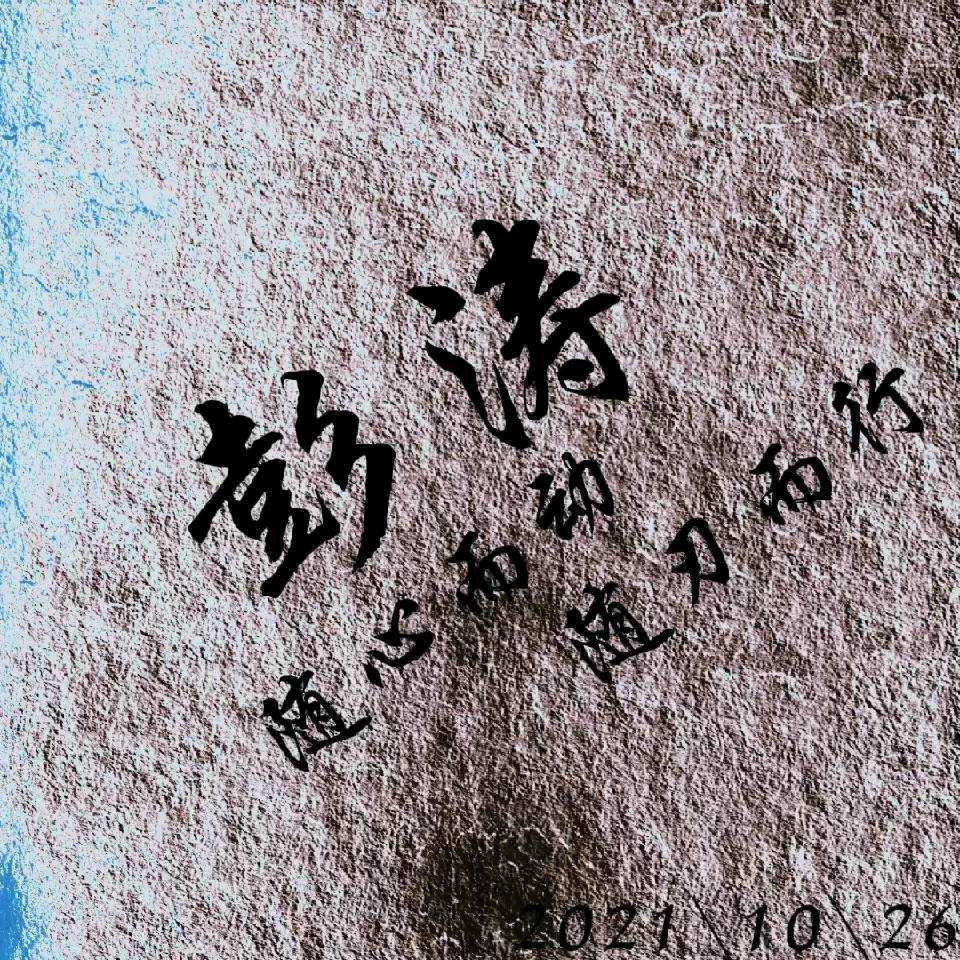 彭涛
随心而动
随刀而行
2021\10\26